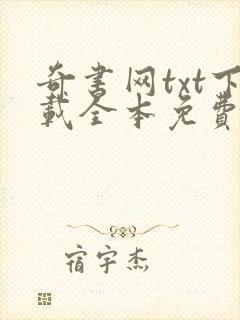 奇书网txt下
载全本免費
宿宇杰